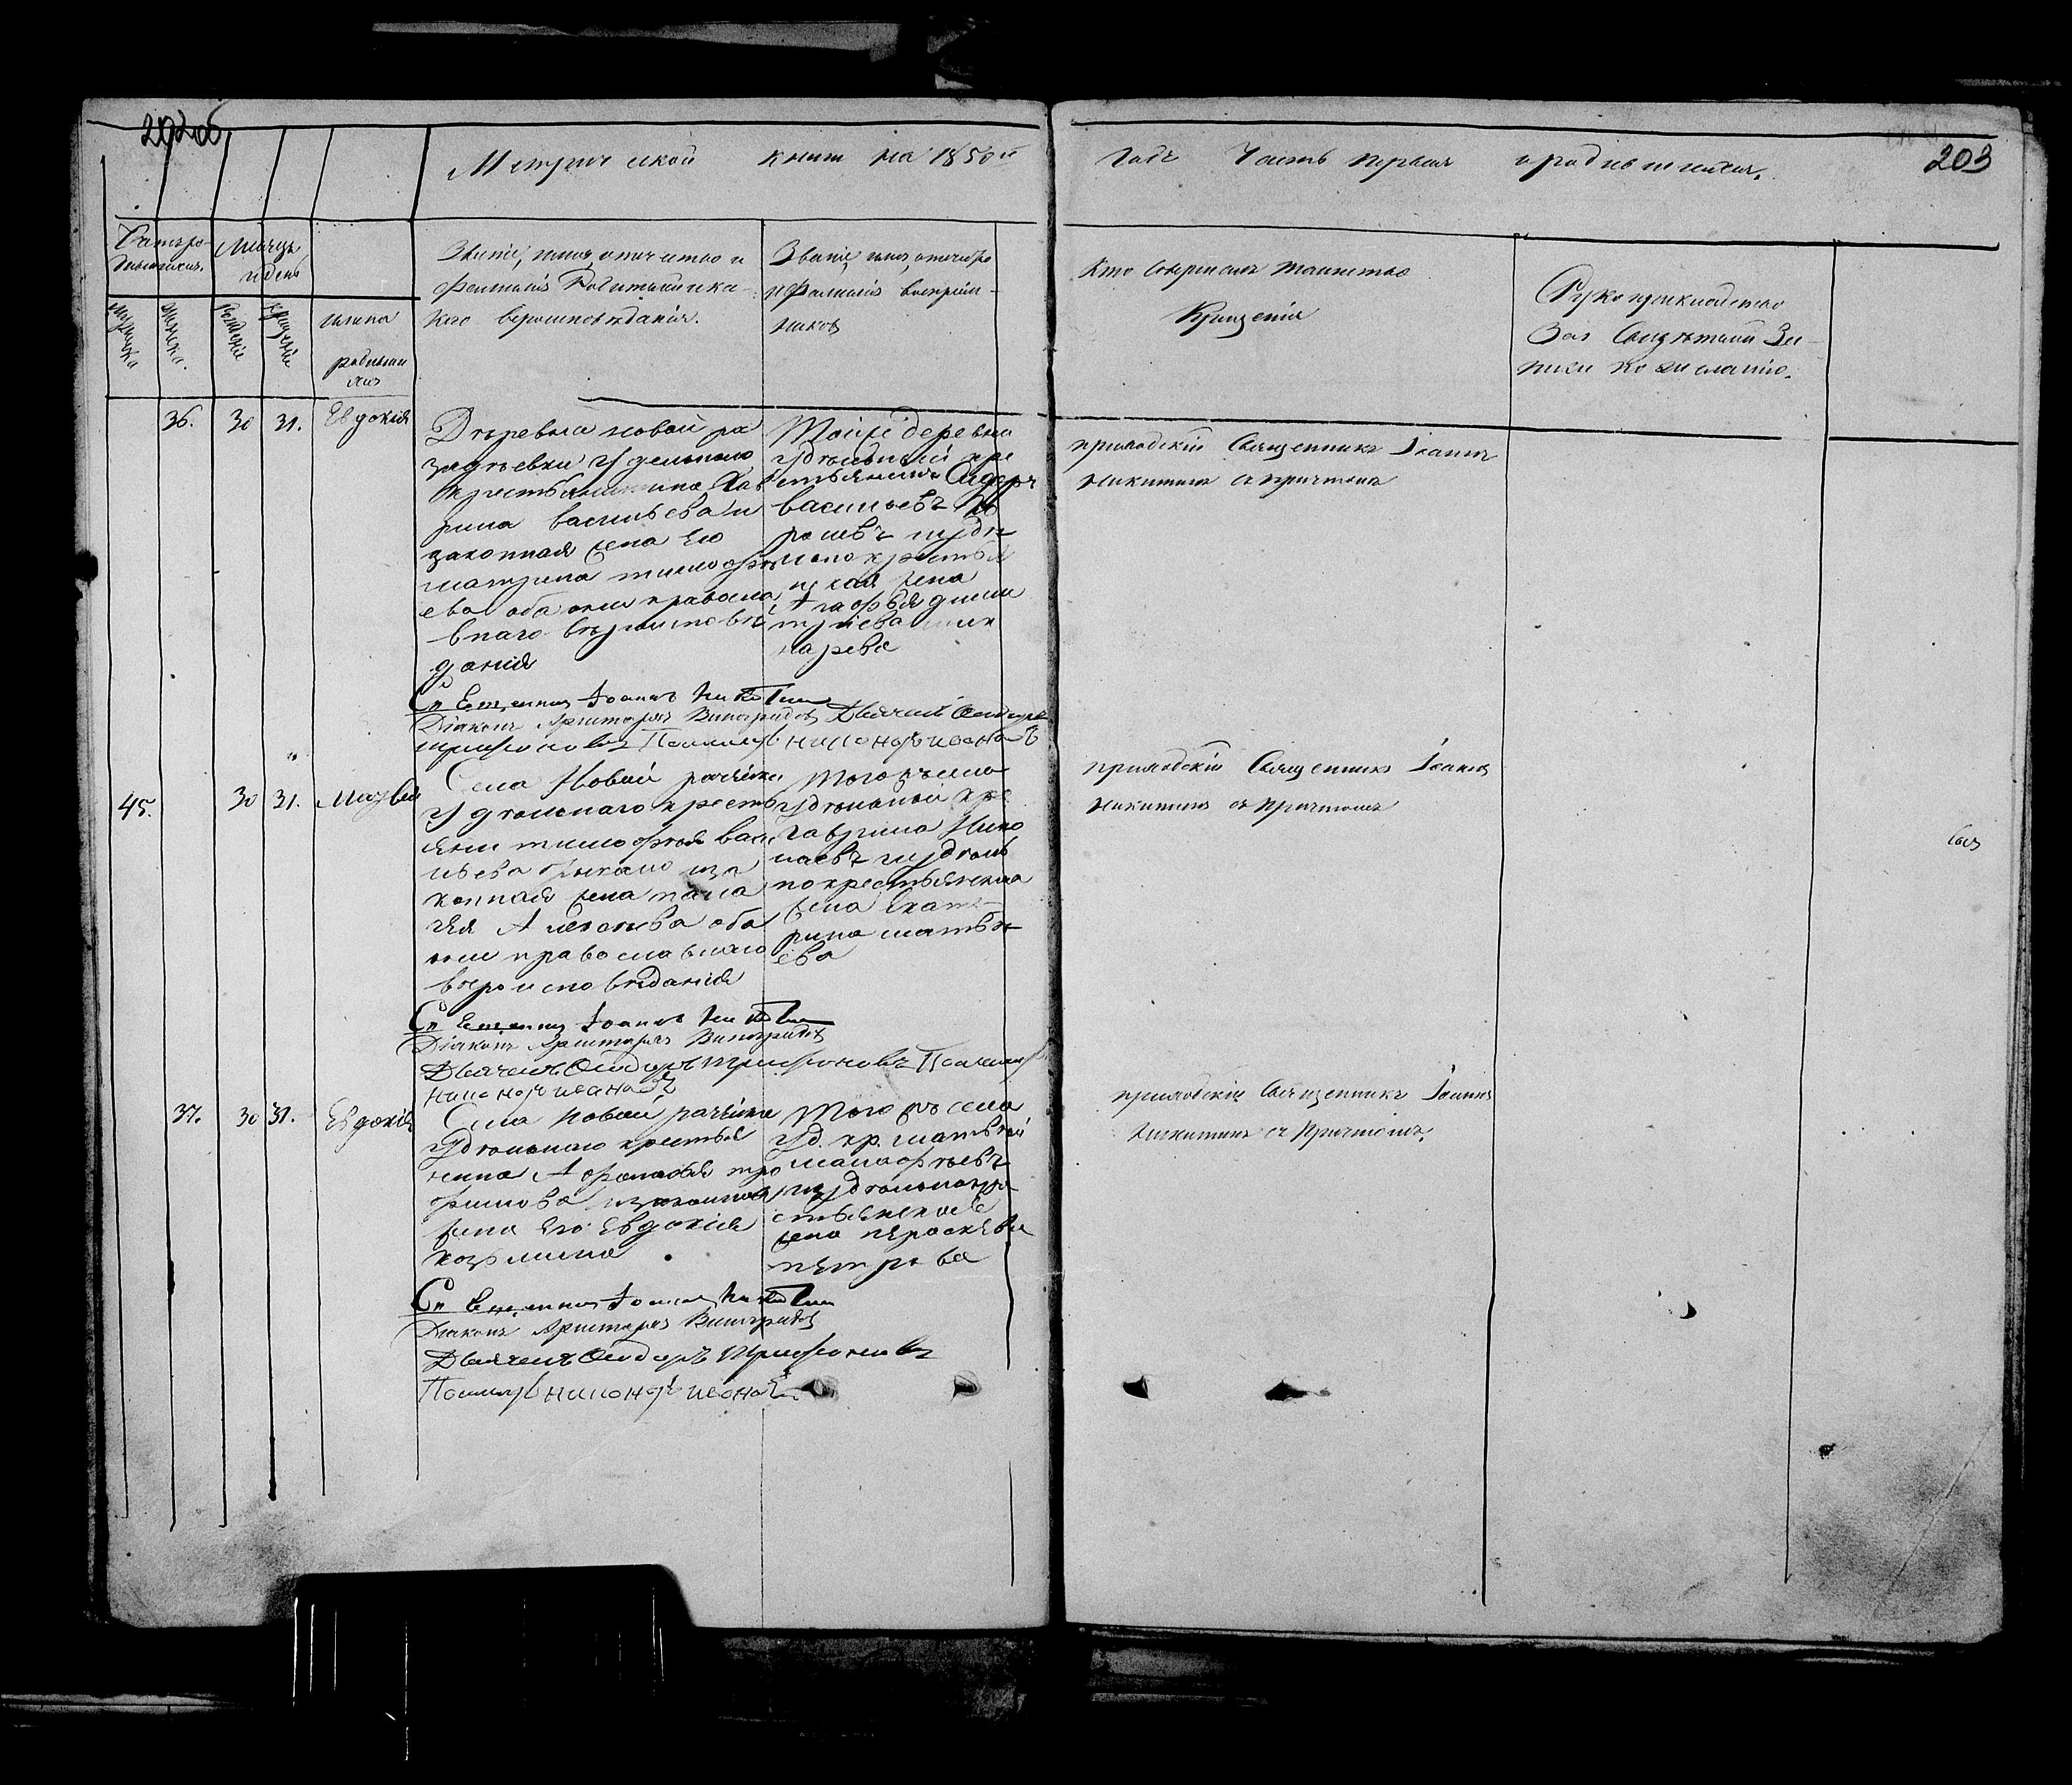 202об
Метрической книги на 1850й годъ Часть первая о родившихся.
203
Счетъ ро-
дившихся.
Мѣсяцъ
и день
мужеска
женска.
Рожденіе
Крещеніе
имена
родивши
хся
Званіе, имя, отчество и
Фамилія Родителей и ка-
кого вероисповѣданія.
Званіе, имя, отчество
и Фамилія воспріем-
никовъ
Кто совершалъ таинство
Крещенія
Рукоприкладство
Свидѣтелей За-
писи по желанію.
36. 30 31. Евдокія
Дѣревни новой ра
удельнаго
крестьянина
васильева и
законная жена Его
матрина тимофѣ
ева оба они правосла
внаго вѣроисповѣ
данія
Тойже деревни
удѣльный кре
стьянинъ Сидоръ
васильевъ
удѣ
льно крестья
нская жена
Агафья дми
триева
приходскій Священникъ Іоаннъ
Никитинъ съ причтомъ
Священникъ Іоаннъ Никитин
Діаконъ Аристархъ Виноградовъ Дьячекъ Ѳеодоръ
Трифоновъ Пономарь никоноръ ивановъ
45. 30 31. Матвей
Села Новой рачейки
Удѣльнаго кресть
яни тимофея васи
льева и за
конная жена пела
гея Алексѣева оба
они православнаго
вѣроисповѣданія
Тогожъ села
удѣльной кре
гаврила Нико
лаевъ и удѣль
но крестьянска
жена екате-
рина матвѣ
ева
приходскій Священникъ Іоаннъ
Никитинъ съ причтомъ
Священникъ Іоаннъ Никитин
Діаконъ Аристархъ Виноградовъ
Дьячекъ Ѳеодоръ Трифоновъ Пономарь
никоноръ ивановъ
37. 30 31. Евдокія
Села Новой рачейки
удѣльнаго крестья
нина Афанасья тро
фимова и законная
жена Его Евдокія
козмина
Тогожъ села
уд. кр. матвѣй
тимофѣевъ
и удѣльнокре
стьянская
жена параскева
петрова
приходскій Священникъ Іоаннъ
Никитинъ съ Причтомъ.
Священникъ Іоаннъ Никитин
Діаконъ Аристархъ Виноградовъ
Дьячекъ Ѳеодоръ Трифоновъ
Пономарь никоноръ ивановъ